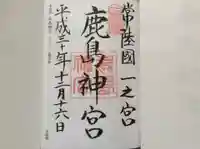 常陸國一之宮
鹿島神宮
平成三十年十二月十六日